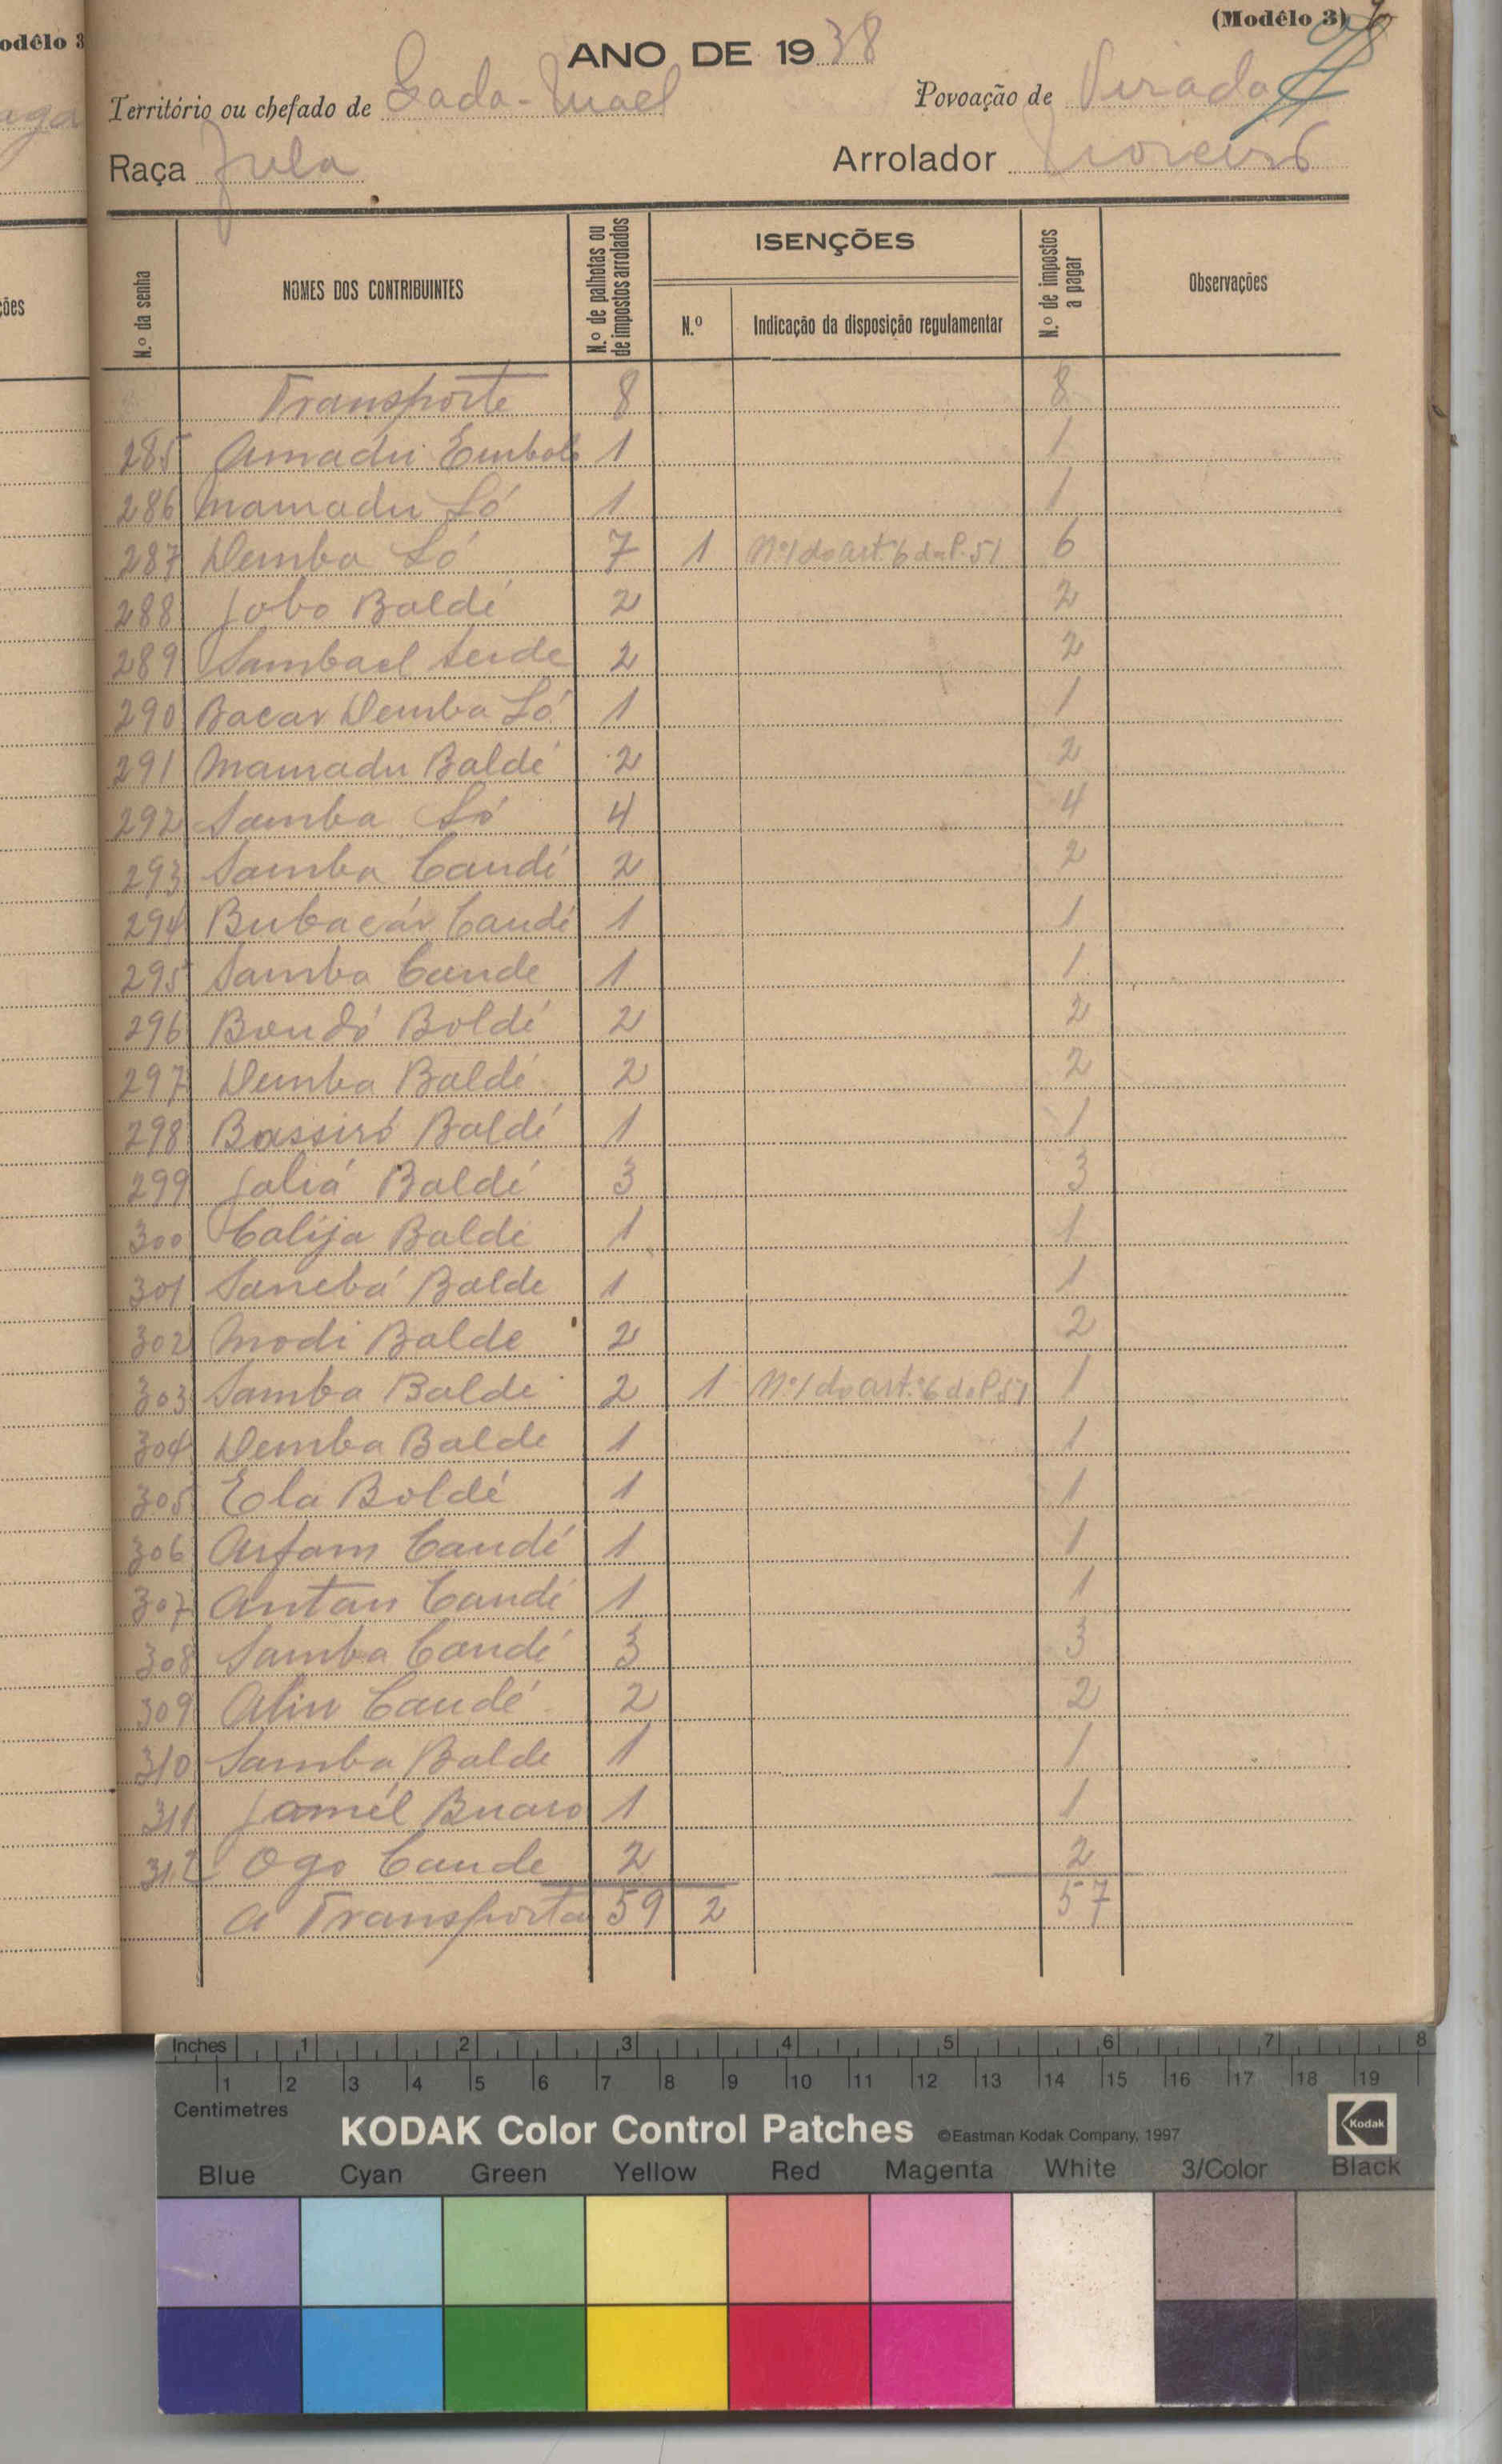 odêlo 3
ções
(Modêlo 3)
ANO DE 1938
Território ou chefado de Gada-Mael Povoação de Virada
Raça Fula Arrolador Moreira
N.º da senha NOMES DOS CONTRIBUINTES N.º de palhotas ou de impostos arrolados ISENÇÕES N.º Indicação da disposição regulamentar N.º de impostos a pagar Observações
Transporte 8 8
285 Amadú Embaló 1 1
286 Mamadu Só 1 1
287 Demba Só 7 1 Nº1 do art.º 6 do P. 51 6
288 Jobo Baldé 2 2
289 Sambael Seide 2 2
290 Bacar Demba Só 1 1
291 Mamadu Baldé 2 2
292 Samba Só 4 4
293 Samba Candé 2 2
294 Bubacár Candé 1 1
295 Samba Cande 1 1
296 Bondó Boldé 2 2
297 Demba Baldé 2 2
298 Bassiró Baldé 1 1
299 Jaliá Baldé 3 3
300 Calija Balde 1 1
301 Sanebá Balde 1 1
302 Modi Balde 2 2
303 Samba Balde 2 1 Nº1 do art.º 6 do P. 51 1
304 Demba Balde 1 1
305 Ela Boldé 1 1
306 Arfam Candé 1 1
307 Antan Candé 1 1
308 Samba Candé 3 3
309 Aliu Candé 2 2
310 Samba Balde 1 1
311 Jamél Buaro 1 1
312 Ogo Cande 2 2
A Transportar 59 2 57
Inches 1 2 3 4 5 6 7 8
1 2 3 4 5 6 7 8 9 10 11 12 13 14 15 16 17 18 19
Centimetres
KODAK Color Control Patches ©Eastman Kodak Company, 1997 Kodak
Blue Cyan Green Yellow Red Magenta White 3/Color Black